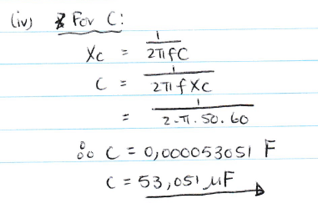 (iv) * For C:
Xc = 1 / 2πfC
C = 1 / 2πf Xc
= 1 / 2.π.50.60
∴ C = 0,000053051 F
C = 53,051 μF